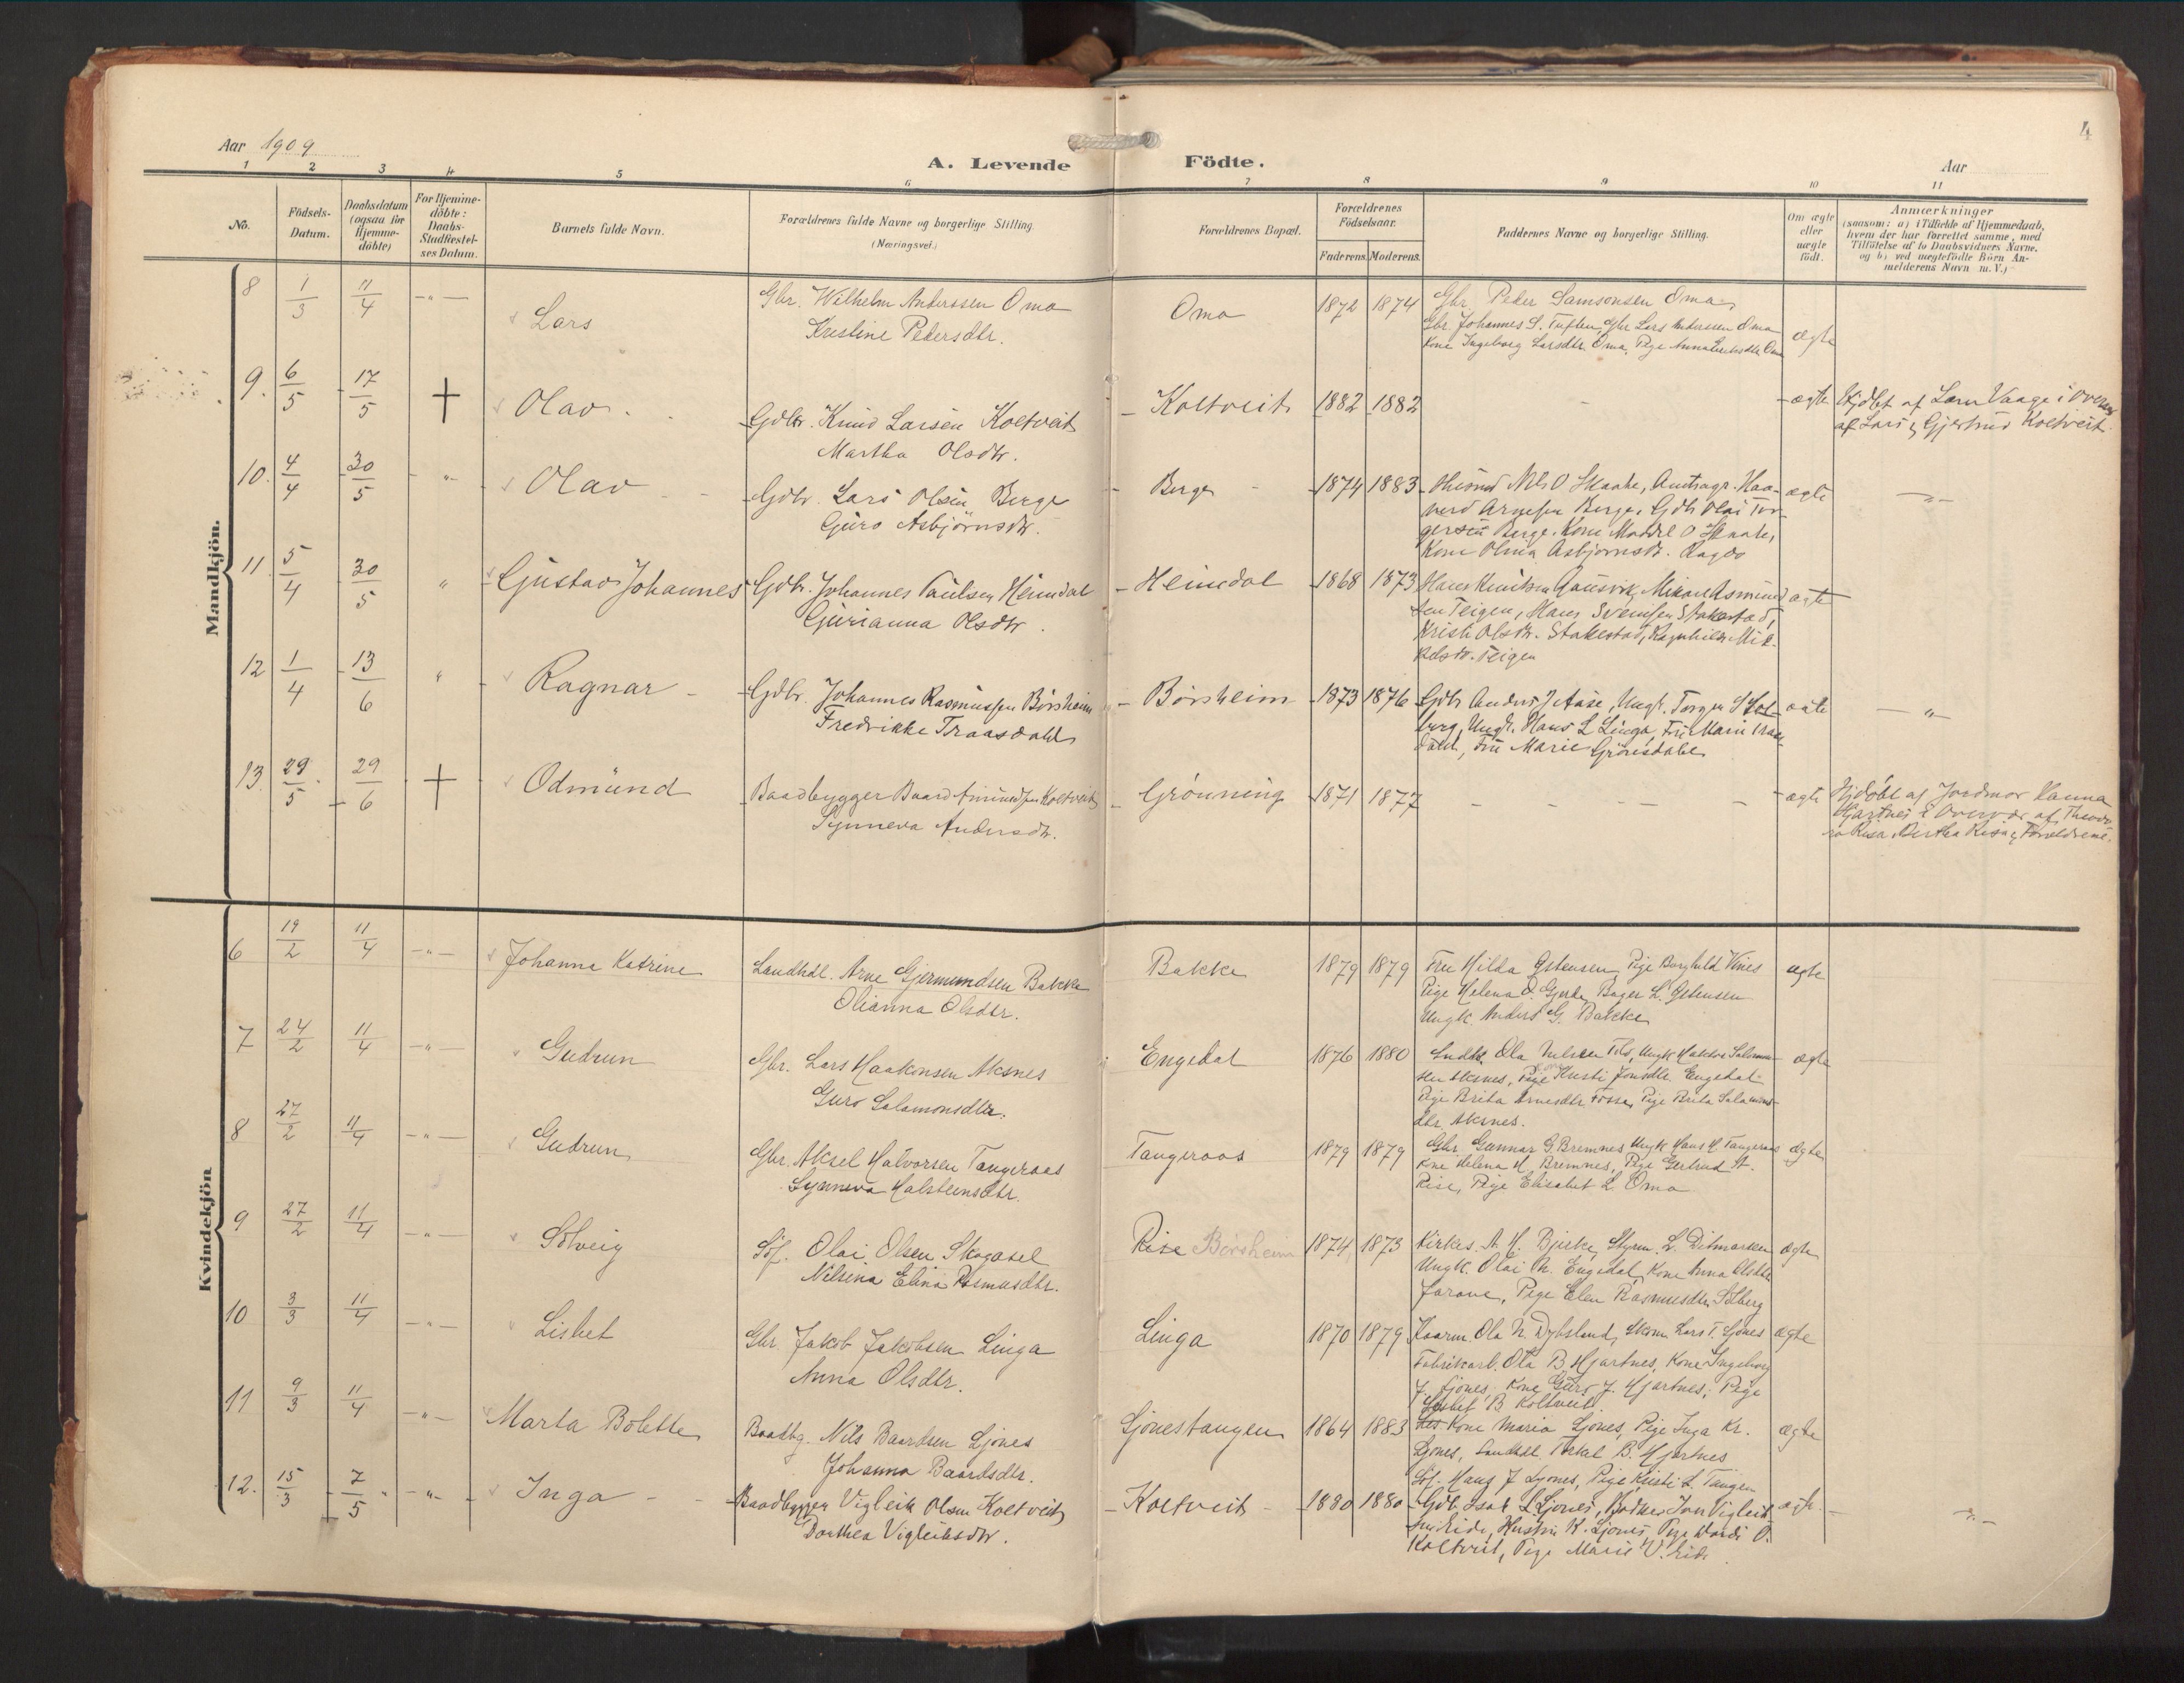 4
Aar 1909
A. Levende Födte.
Aar
1 2 3 4 5 6 7 8 9 10 11
No.
Födsels-
Datum.
Daabsdatum
(ogsaa for
Hjemme-
döbte)
For Hjemme-
döbte:
Daabs-
Stadfæstel-
ses Datum.
Barnets fulde Navn.
Forældrenes fulde Navne og borgerlige Stilling
(Næringsvei.)
Forældrenes Bopæl.
Forældrenes
Födselsaar.
Faderens. Moderens.
Faddernes Navne og borgerlige Stilling.
Om ægte
eller
uægte
födt.
Anmærkninger
(saasom: a) i Tilfælde af Hjemmedaab,
hvem der har forrettet samme, med
Tilföielse af to Daabsvidners Navne,
og b) ved uægtefödte Börn An-
melderens Navn m. V.)
Mandkjön.
8 1/3 11/4 -"- Lars
Gbr. Wilhelm Anderssen Oma
Kristine Pedersdtr.
Oma 1872 1874
Gbr. Peder Samsonsen Oma,
Gbr. Johannes S. Tuften, Gbr Lars Anderssen Oma
Kone Ingeborg Larsdtr. Oma, Pige Anna Oma
ægte
9. 6/5 17/5 + Olav
Gdbr. Knud Larsen Koltveit
Martha Olsdtr.
Koltveit 1882 1882 -
ægte
Hjdbt af Lars Vaage i Overvær
af Lars & Gjertrud Koltveit.
10. 4/4 30/5 " Olav
Gdbr. Lars Olsen Berge
Guro Asbjörnsdtr.
Berge 1874 1883
Nils O Skaate, Haa-
vard Arnesen Berge, Gdbr Olai Tor-
gersen Berge, Kone O Skaate,
Kone Olina Asbjörnsdtr.
ægte -"-
11. 5/4 30/5 " Gustav Johannes
Gdbr. Johannes Paulsen Heimdal
Gurianna Olsdtr.
Heimdal 1868 1873
Hans Knutsen Gausvik, Mikael Asmund-
sen Teigen, Hans Svensen Stakestad,
Kristi Olsdtr. Stakestad, Ragnhild Mik-
kelsdtr. Teigen
ægte
12 1/4 13/6 " Ragnar
Gdbr. Johannes Rasmussen Börsheim
Fredrikke Traasdahl
Börsheim 1873 1876
Gdbr Anders J Aase, Ungk. Torger S Sol-
berg, Ungk. Hans L Linga, Fru Marie Traas-
dahl, Fru Marie Grönsdahl
ægte -"-
13. 29/5 29/6 + Odmund
Baadbygger Baard Amundsen Koltveit
Synneva Andersdtr.
Grönning 1871 1877 - - - - -
ægte
Hjdöbt af Jordmor Hanna
Hjartnes i Overvær af Theodo-
ra Risa, Birtha Risa & Forældrene.
Kvindekjön
6 19/2 11/4 -"- Johanna Katrine
Landhdl. Arne Gjermundsen Bakke
Olianna Olsdtr.
Bakke 1879 1879
Fru Hilda Ostensen, Pige Borghild Vines
Pige Helena O. Gjerde, Bager L. Ostensen
Ungk. Anders G. Bakke
ægte
7 24/2 11/4 -"- Gudrun
Gbr. Lars Haakonsen Aksnes
Guro Salamonsdtr.
Engedal 1876 1880
Ola Nilsen, Ungk Haktor Salamon-
sen Aksnes, Pige Kristi Jonsdtr. Engedal
Pige Brita Arnesdtr Fosse, Pige Brita Salamons-
dtr. Aksnes.
ægte
8 27/2 11/4 -"- Gudrun
Gbr. Aksel Halvorsen Tangeraas
Synneva Halsteinsdtr.
Tangeraas 1879 1879
Gbr. Gunnar G. Bremnes Ungk Hans H Tangeraas
Kone Helena H. Bremnes, Pige Gertrud A.
Rise, Pige Elisabet L Oma
ægte
9 27/2 11/4 -"- Solveig
Söf. Olai Olsen Skogasel
Nilsina Elina Rasmusdtr.
Rise Börsheim 1874 1873
Kirkes. A. H. Bjerke, Styrm. L. Ditmarken
Ungk. Olai M. Engedal, Kone Anna Olsdtr
Jarane, Pige Elen Rasmusdtr. Solberg
ægte
10 3/3 11/4 -"- Lisbet
Gbr. Jakob Jakobsen Linga
Anna Olsdtr.
Linga 1870 1879
Kaarm. Ola N. Dybsland, Skom. Lars T. Ljones
Fabrikarb. Ola B. Hjartnes, Kone Ingeborg
J. Ljones, Kone Guro J. Hjartnes, Pige
Lisbet B Koltveit.
ægte
11 9/3 11/4 -"- Marta Bolette
Baatbg. Nils Baardsen Ljones
Johanna Baardsdtr.
Ljonestangen 1864 1883
Kone Maria Ljones, Pige Inga Kr.
Ljones, Landhdl. Torkel B. Hjartnes
Söf. Hans J Ljones, Pige Kristi L. Tangen
ægte
12. 15/3 7/5 -"- Inga
Baadbygger Vigleik Olsen Koltveit
Dorthea Vigleiksdtr.
Koltveit 1880 1880
Gdb. Isak L Ljones, Bödker Jon Vigleik-
sen Eide, Hustru K. Ljones, Pige O.
Koltveit, Pige Marie V. Eide
ægte -"-